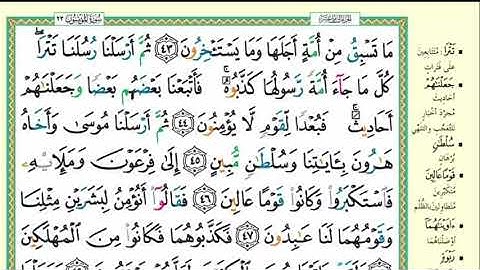 سورة المؤمنون ٢٣
مَا تَسْبِقُ مِنْ أُمَّةٍ أَجَلَهَا وَمَا يَسْتَـْٔخِرُونَ ٤٣ ثُمَّ أَرْسَلْنَا رُسُلَنَا تَتْرَا ۖ
كُلَّ مَا جَآءَ أُمَّةً رَّسُولُهَا كَذَّبُوهُ ۚ فَأَتْبَعْنَا بَعْضَهُم بَعْضًا وَجَعَلْنَـٰهُمْ
أَحَادِيثَ ۚ فَبُعْدًا لِّقَوْمٍ لَّا يُؤْمِنُونَ ٤٤ ثُمَّ أَرْسَلْنَا مُوسَىٰ وَأَخَاهُ
هَـٰرُونَ بِـَٔايَـٰتِنَا وَسُلْطَـٰنٍ مُّبِينٍ ٤٥ إِلَىٰ فِرْعَوْنَ وَمَلَإِي۟هِۦ
فَٱسْتَكْبَرُوا۟ وَكَانُوا۟ قَوْمًا عَالِينَ ٤٦ فَقَالُوٓا۟ أَنُؤْمِنُ لِبَشَرَيْنِ مِثْلِنَا
وَقَوْمُهُمَا لَنَا عَـٰبِدُونَ ٤٧ فَكَذَّبُوهُمَا فَكَانُوا۟ مِنَ ٱلْمُهْلَكِينَ
تَتْرَا: مُتَتَابِعِينَ
عَلَى فَتَرَاتٍ
جَعَلْنَـٰهُمْ
أَحَادِيثَ
مُجَرَّدَ أَخْبَارٍ
لِلتَّعَجُّبِ وَالتَّلَهِّي
سُلْطَـٰنٍ
بُرْهَانٍ
قَوْمًا عَالِينَ
مُتَكَبِّرِينَ
مُتَطَاوِلِينَ بِالظُّلْمِ
ءَاوَيْنَـٰهُمَا
أَوْصَلْنَاهُمَا
رَبْوَةٍ